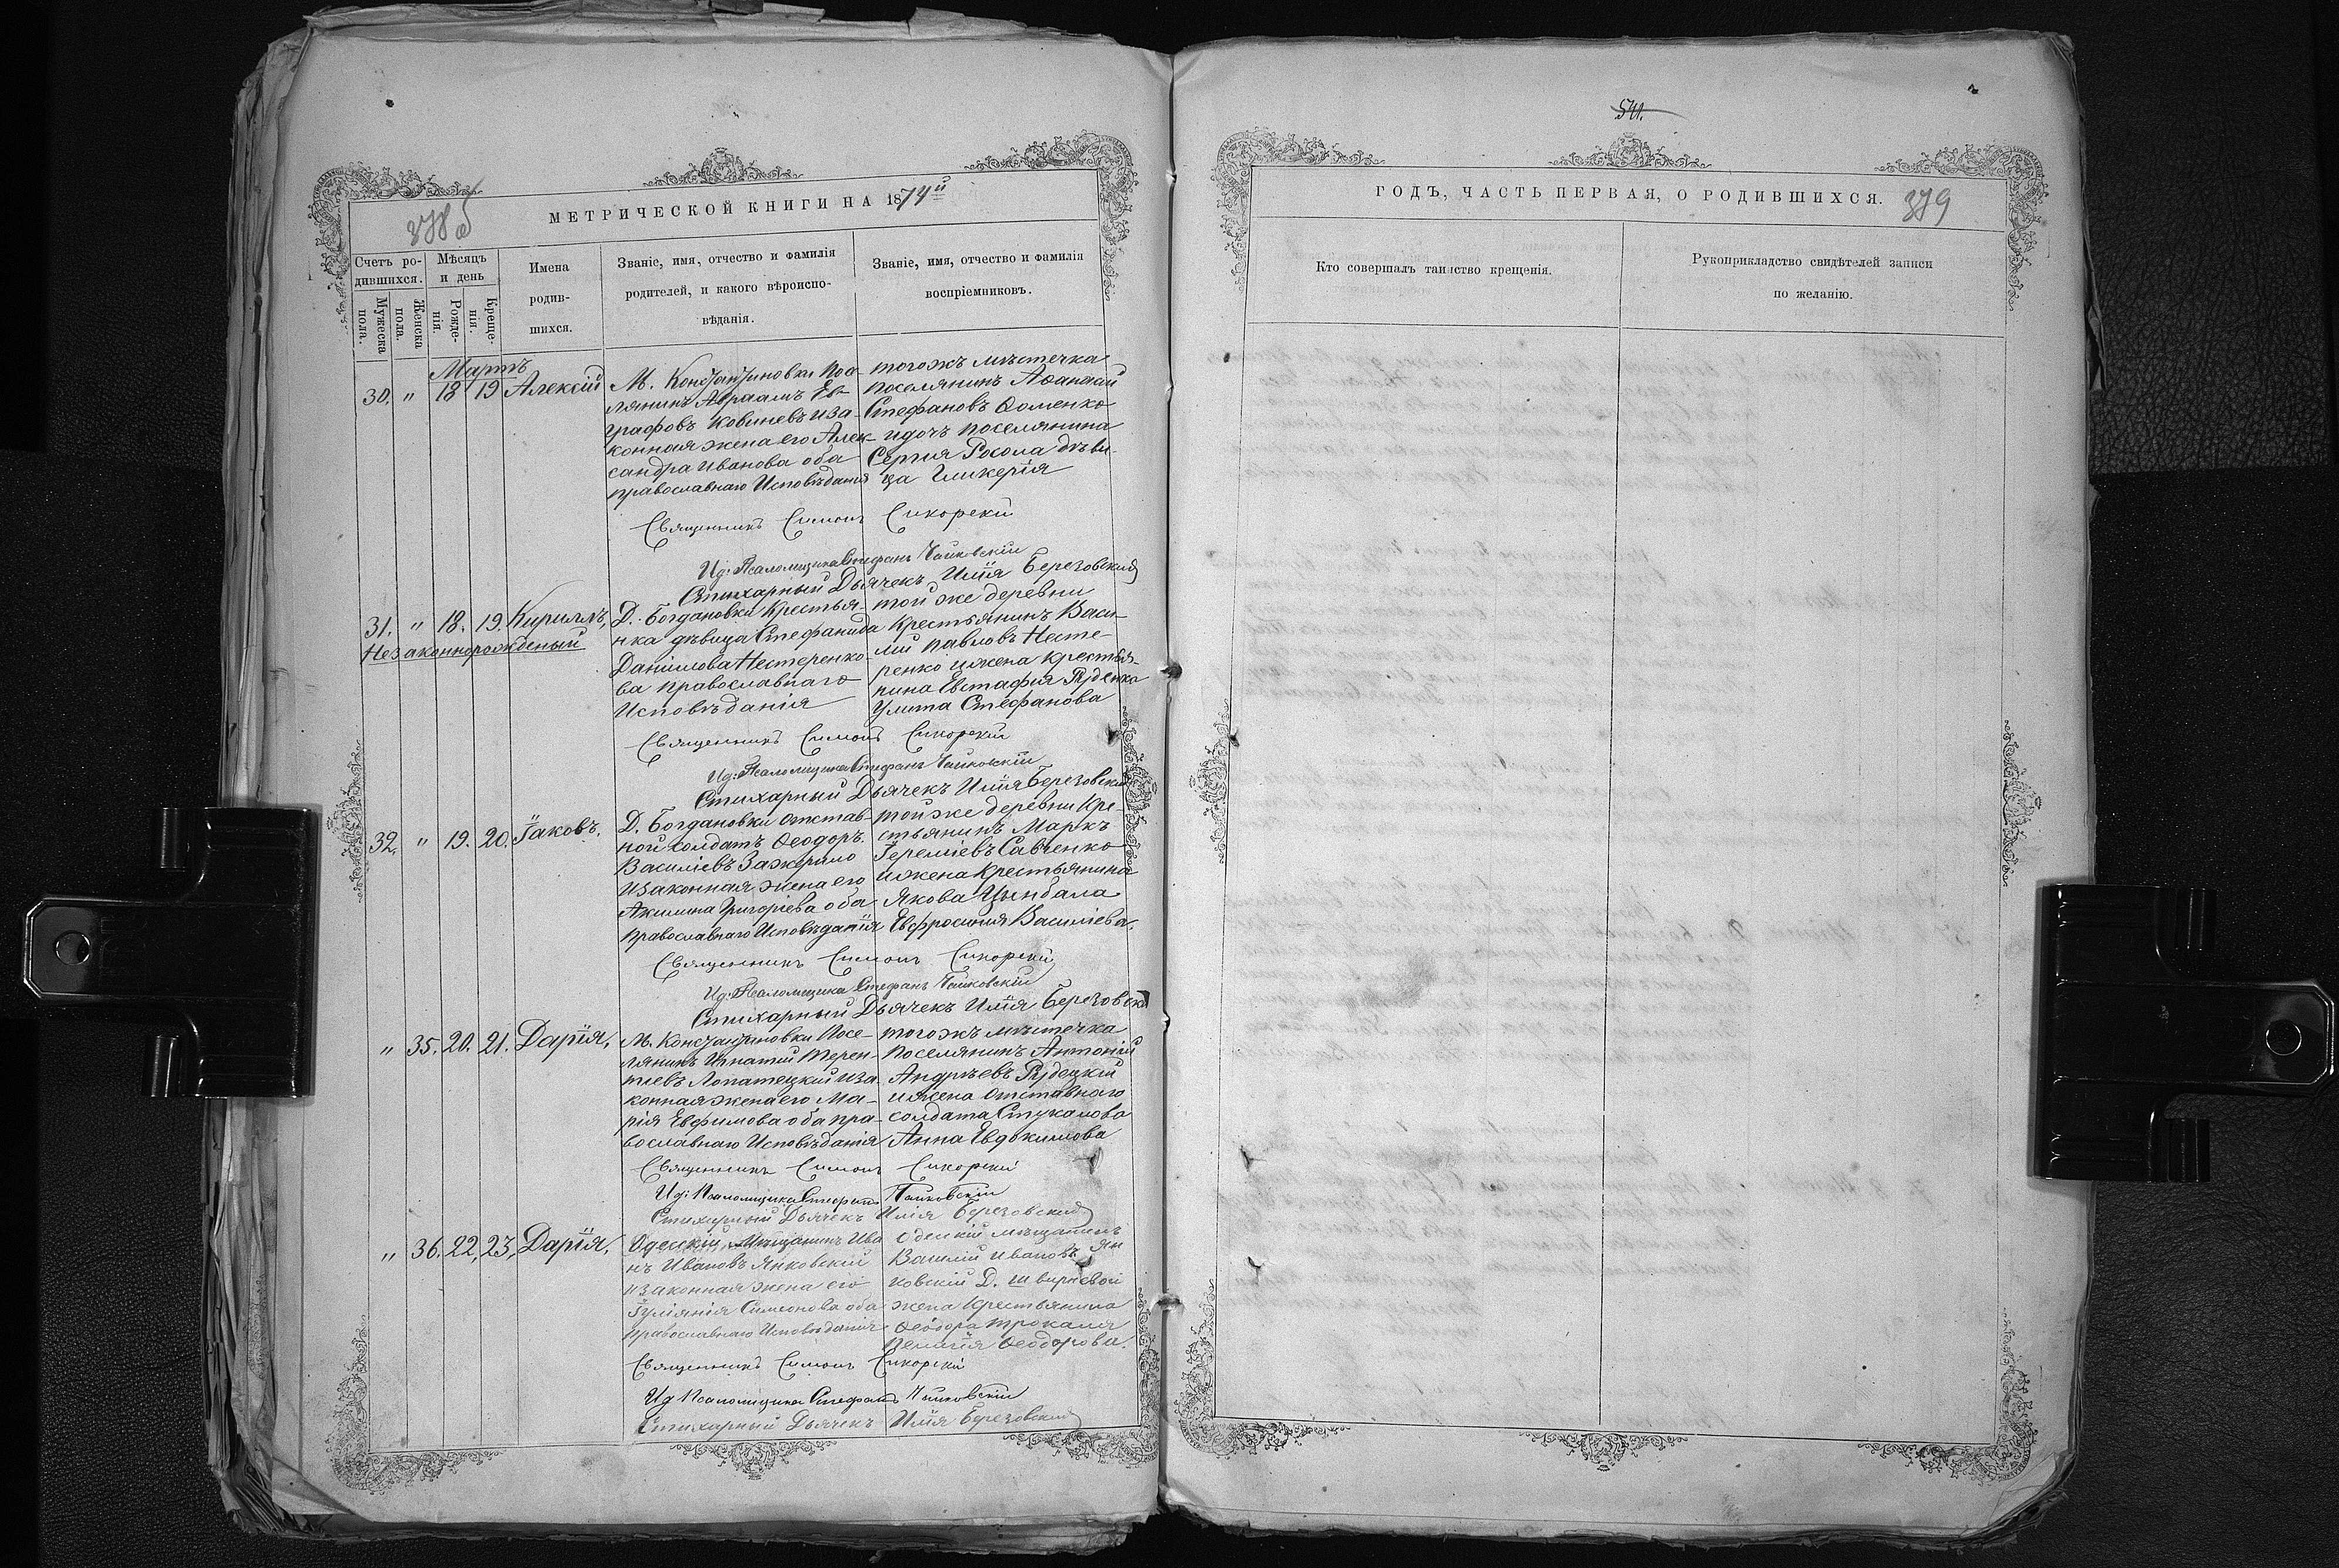 378 об
МЕТРИЧЕСКОЙ КНИГИ НА 1874й
Счетъ ро-
дившихся.
Мужеска
пола.
Женска
пола.
Мѣсяцъ
и день
Рожде-
нія.
Креще-
нія.
Имена
родив-
шихся.
Званіе, имя, отчество и фамилія
родителей, и какого вѣроиспо-
вѣданія.
Званіе, имя, отчество и фамилія
воспріемниковъ.
Мартъ
30. " 18 19 Алексій
М. Константиновки Посе
лянинъ Авраамъ Ев-
графовъ Ковиневъ иза-
конная жена его Алек-
сандра Иванова оба
православнаго Исповѣданія
тогожъ мѣстечка
поселянинъ Аѳанасій
Стефановъ Ѳоменко
идочъ поселянина
Сергія Росола дѣви-
ца Гликерія
Священникъ Симонъ Сикорскій
Ид: Псаломщика Стефанъ Чайковскій
Стихарный Дьячекъ Илія Березовский
31. " 18. 19. Кириллъ,
Незаконнорожденый
Д. Богдановки Крестья-
нка дѣвица Стефанида
Даніилова Нестеренко-
ва православнаго
Исповѣданія
той же деревни
Крестьянинъ Васи-
лій Павловъ Несте-
ренко и жена крестья-
нина Евстафія Руденка
Улита Стефанова
Священникъ Симонъ Сикорскій
Ид: Псаломщика Стефанъ Чайковскій
Стихарный Дьячекъ Илія Березовский
32. " 19. 20. Іаковъ.
Д. Богдановки отстав-
ной солдатъ Ѳеодоръ
Василіевъ Зажерило
изаконная жена его
Акилина Григоріева оба
православнаго Исповѣданія
той же деревни Кре-
стьянинъ Маркъ
Іереміевъ Савченко
и жена Крестьянина
Якова Цымбала
Евфросинія Василіева.
Священникъ Симонъ Сикорскій
Ид: Псаломщика Стефанъ Чайковскій
Стихарный Дьячекъ Илія Березовский
" 35. 20. 21. Дарія,
М. Константиновки Посе-
лянинъ Игнатій Терен-
тіевъ Лопатецкій иза-
конная жена его Ма-
рія Евфимова оба пра-
вославнаго Исповѣданія
тогожъ мѣстечка
поселянинъ Антоній
Андрѣевъ Рудецкій
и жена отставнаго
солдата Стукалова
Анна Евдокимова
Священникъ Симонъ Сикорскій
Ид: Псаломщика Стефанъ Чайковскій
Стихарный Дьячекъ Илія Березовский
" 36. 22, 23, Дарія,
Одесскій Мѣщанинъ Ива
нъ Ивановъ Янковскій
изаконная жена его
Іуліянія Симеонова оба
православнаго Исповѣданія
Одескій мѣщанинъ
Василій Ивановъ Ян
ковскій Д.
жена Крестьянина
Ѳеодора Трокаля
Пелагія Ѳеодорова.
Священникъ Симонъ Сикорскій
Ид Псаломщика Стефанъ Чайковскій
Стихарный Дьячекъ Илія Березовский
541.
ГОДЪ, ЧАСТЬ ПЕРВАЯ, О РОДИВШИХСЯ.
379
Кто совершалъ таинство крещенія.
Рукоприкладство свидѣтелей записи
по желанію.